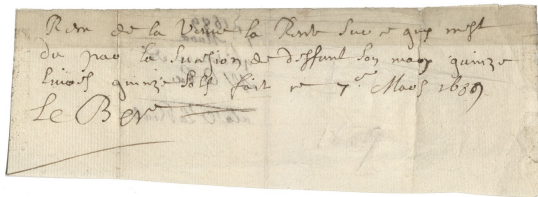 de la Veuve la Rente sur ce qui mest
du par la sucssion de deffunt son mary quinze
livres quinze sols fait ce 7e Mars 1689
Le B